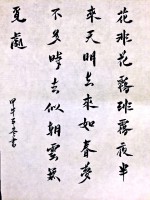 花非花霧非霧夜半
來天明去來如春夢
不多時去似朝雲無
覓處
甲午冬書